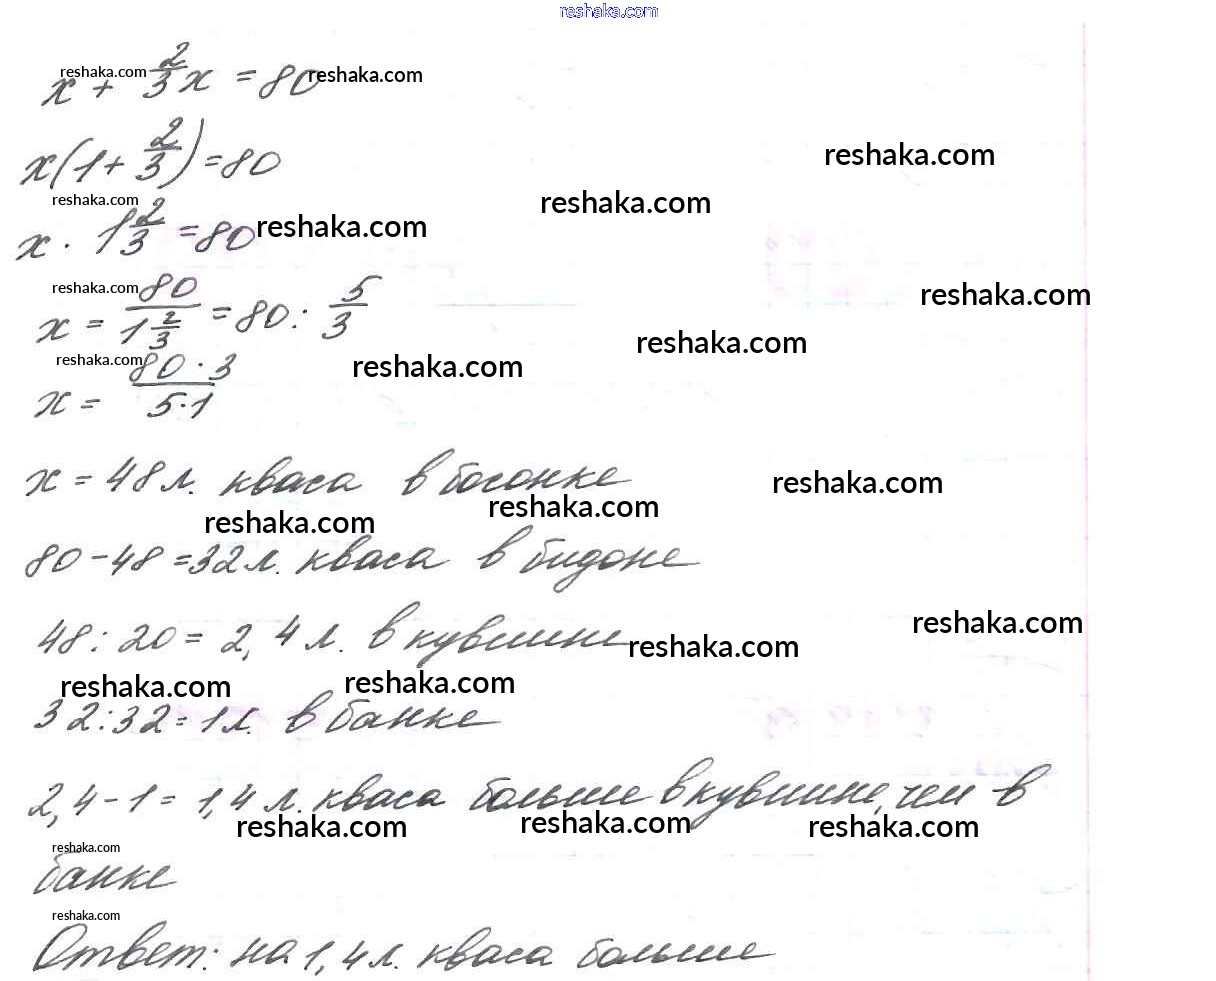 reshaka.com
x + 2/3 x = 80
reshaka.com reshaka.com
x(1 + 2/3) = 80
reshaka.com
reshaka.com reshaka.com
x · 1 2/3 = 80 reshaka.com
reshaka.com reshaka.com
x = 80 / 1 2/3 = 80 : 5/3
reshaka.com
reshaka.com reshaka.com
x = 80 · 3 / 5 · 1
x = 48 л. кваса в бочонке
reshaka.com
reshaka.com reshaka.com
80 - 48 = 32 л. кваса в бидоне
48 : 20 = 2,4 л. в кувшине
reshaka.com reshaka.com
reshaka.com reshaka.com
32 : 32 = 1 л. в банке
2,4 - 1 = 1,4 л. кваса больше в кувшине, чем в
reshaka.com reshaka.com reshaka.com
reshaka.com
банке
reshaka.com
Ответ: на 1,4 л. кваса больше